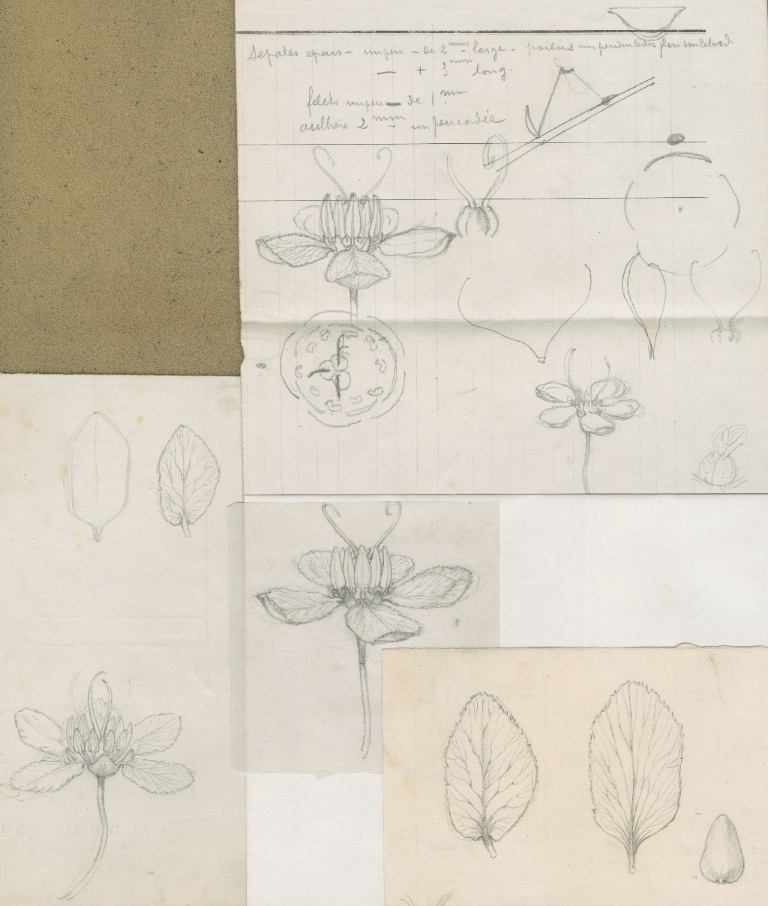 Sepales epais - un peu - de 2 mm large - poilus un peu
— + 3 mm long.
filets un peu — de 1 mm
anthère 2 mm un peu cordée